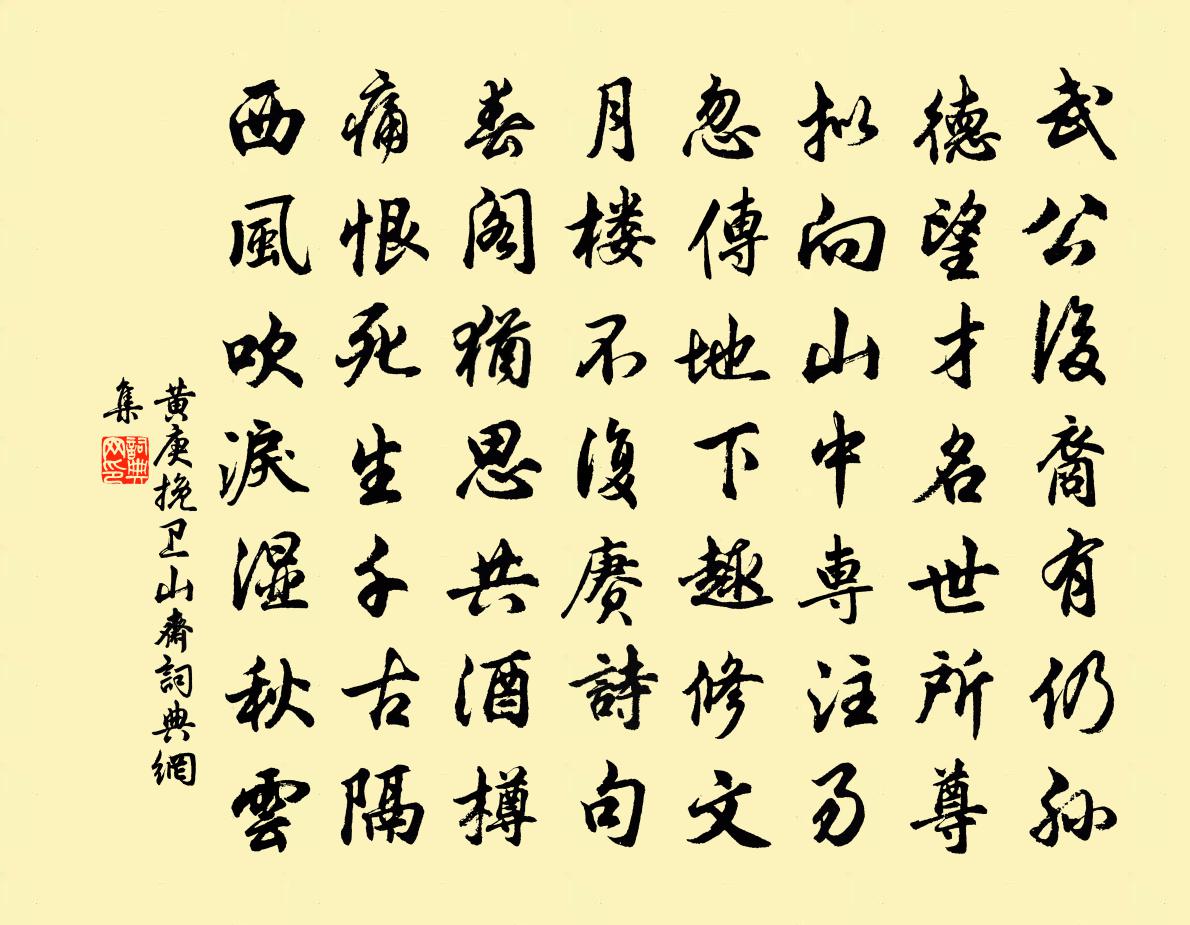 武公後裔有仍孙
德望才名世所尊
拟向山中専注易
忽傳地下趣修文
月楼不復赓詩句
春阁猶思共酒樽
痛恨死生千古隔
西風吹淚濕秋雲
黄庚挽卫山齋詞典網
集
詞典网印